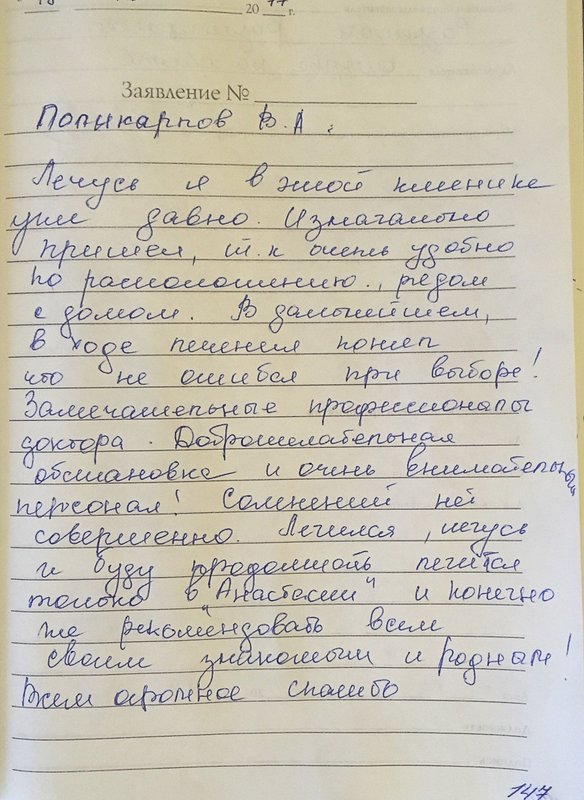 20 17 г.
Заявление №
Поликарпов В.А.
Лечусь я в этой клинике
уже давно. Изначально
пришел, т.к очень удобно
по расположению, рядом
с домом. В дальнейшем,
в ходе лечения понял
что не ошибся при выборе!
Замечательные профессионалы
доктора. Доброжелательная
обстановка и очень внимательный
персонал! Сомнений нет
совершенно. Лечился, лечусь
и буду продолжать лечится
только в "Анастасии" и конечно
же рекомендовать всем
своим знакомым и родным!
Всем огромное спасибо
147